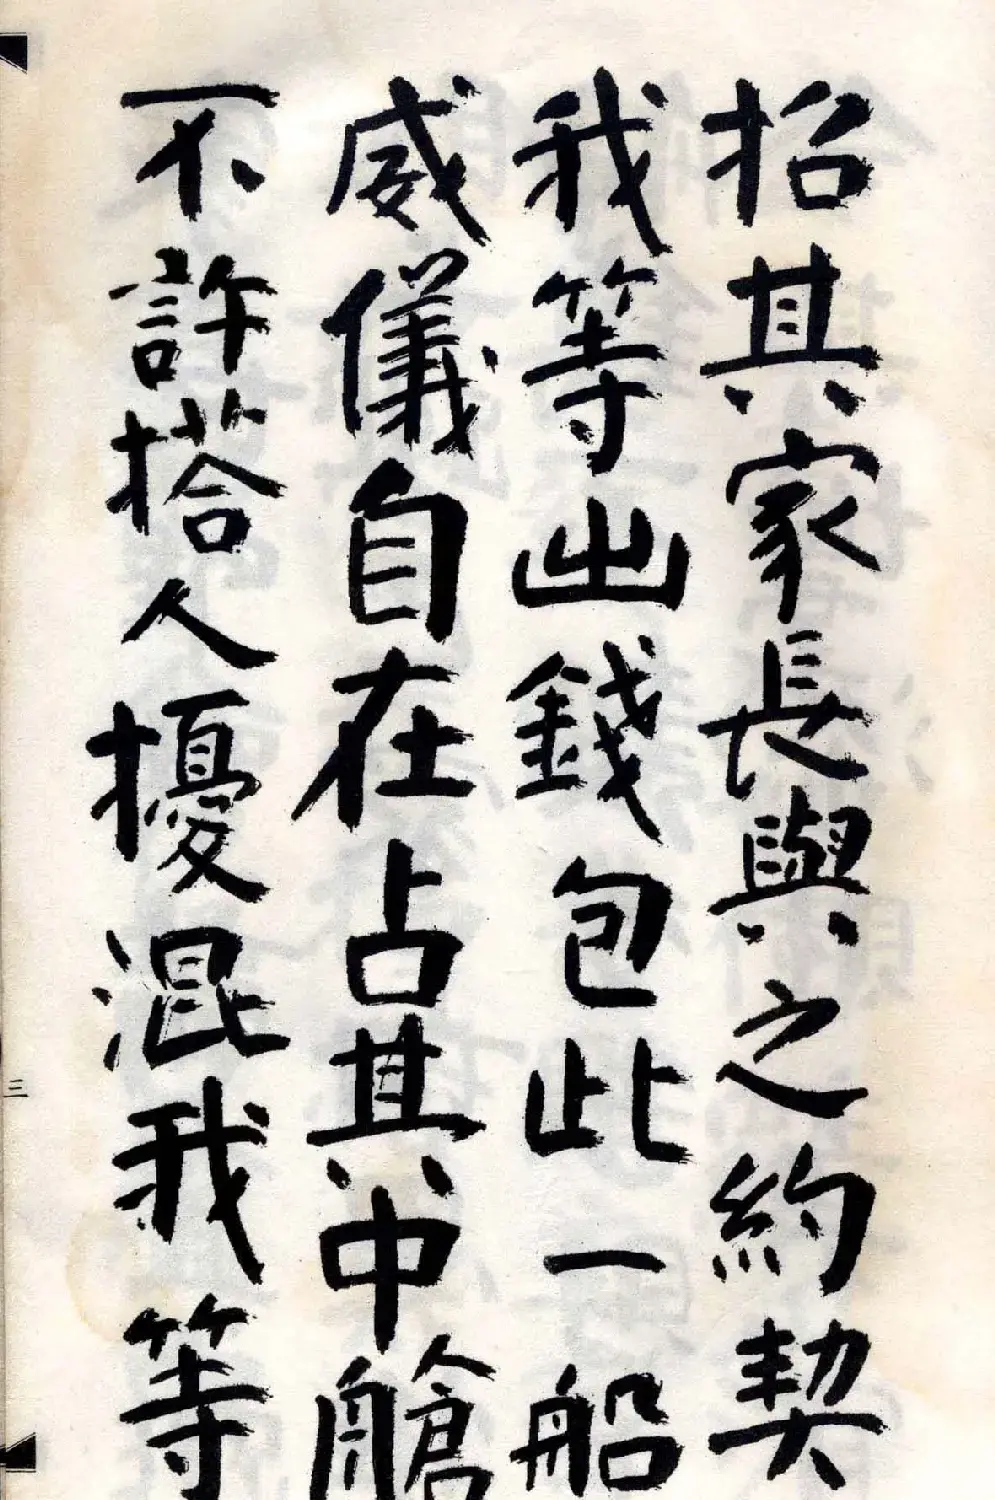 招其家長與之約契
我等出錢包此一船
威儀自在占其中艙
不許搭人擾混我等
三